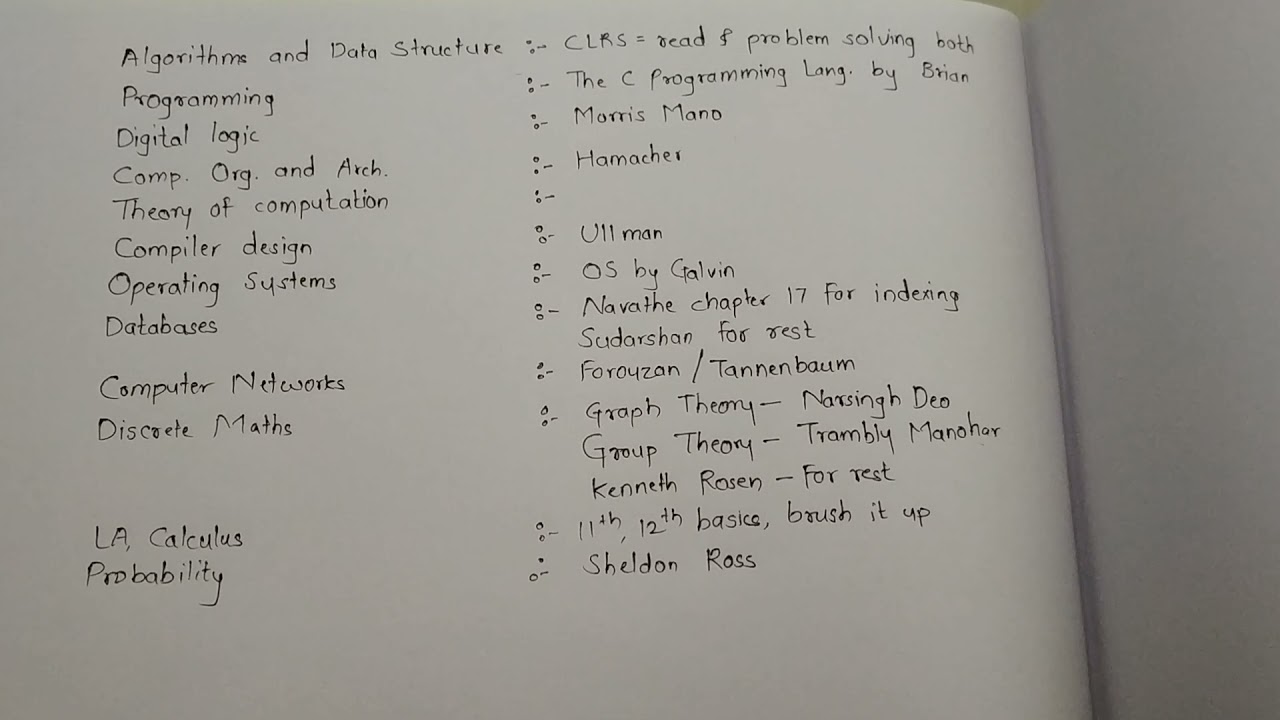 Algorithms and Data Structure :- CLRS = read & problem solving both
Programming :- The C Programming Lang. by Brian
Digital logic :- Morris Mano
Comp. Org. and Arch. :- Hamacher
Theory of computation :-
Compiler design :- Ullman
Operating Systems :- OS by Galvin
Databases :- Navathe chapter 17 for indexing
Sudarshan for rest
Computer Networks :- Forouzan / Tannenbaum
Discrete Maths :- Graph Theory - Narsingh Deo
Group Theory - Trambly Manohar
Kenneth Rosen - For rest
LA, Calculus :- 11th, 12th basics, brush it up
Probability :- Sheldon Ross